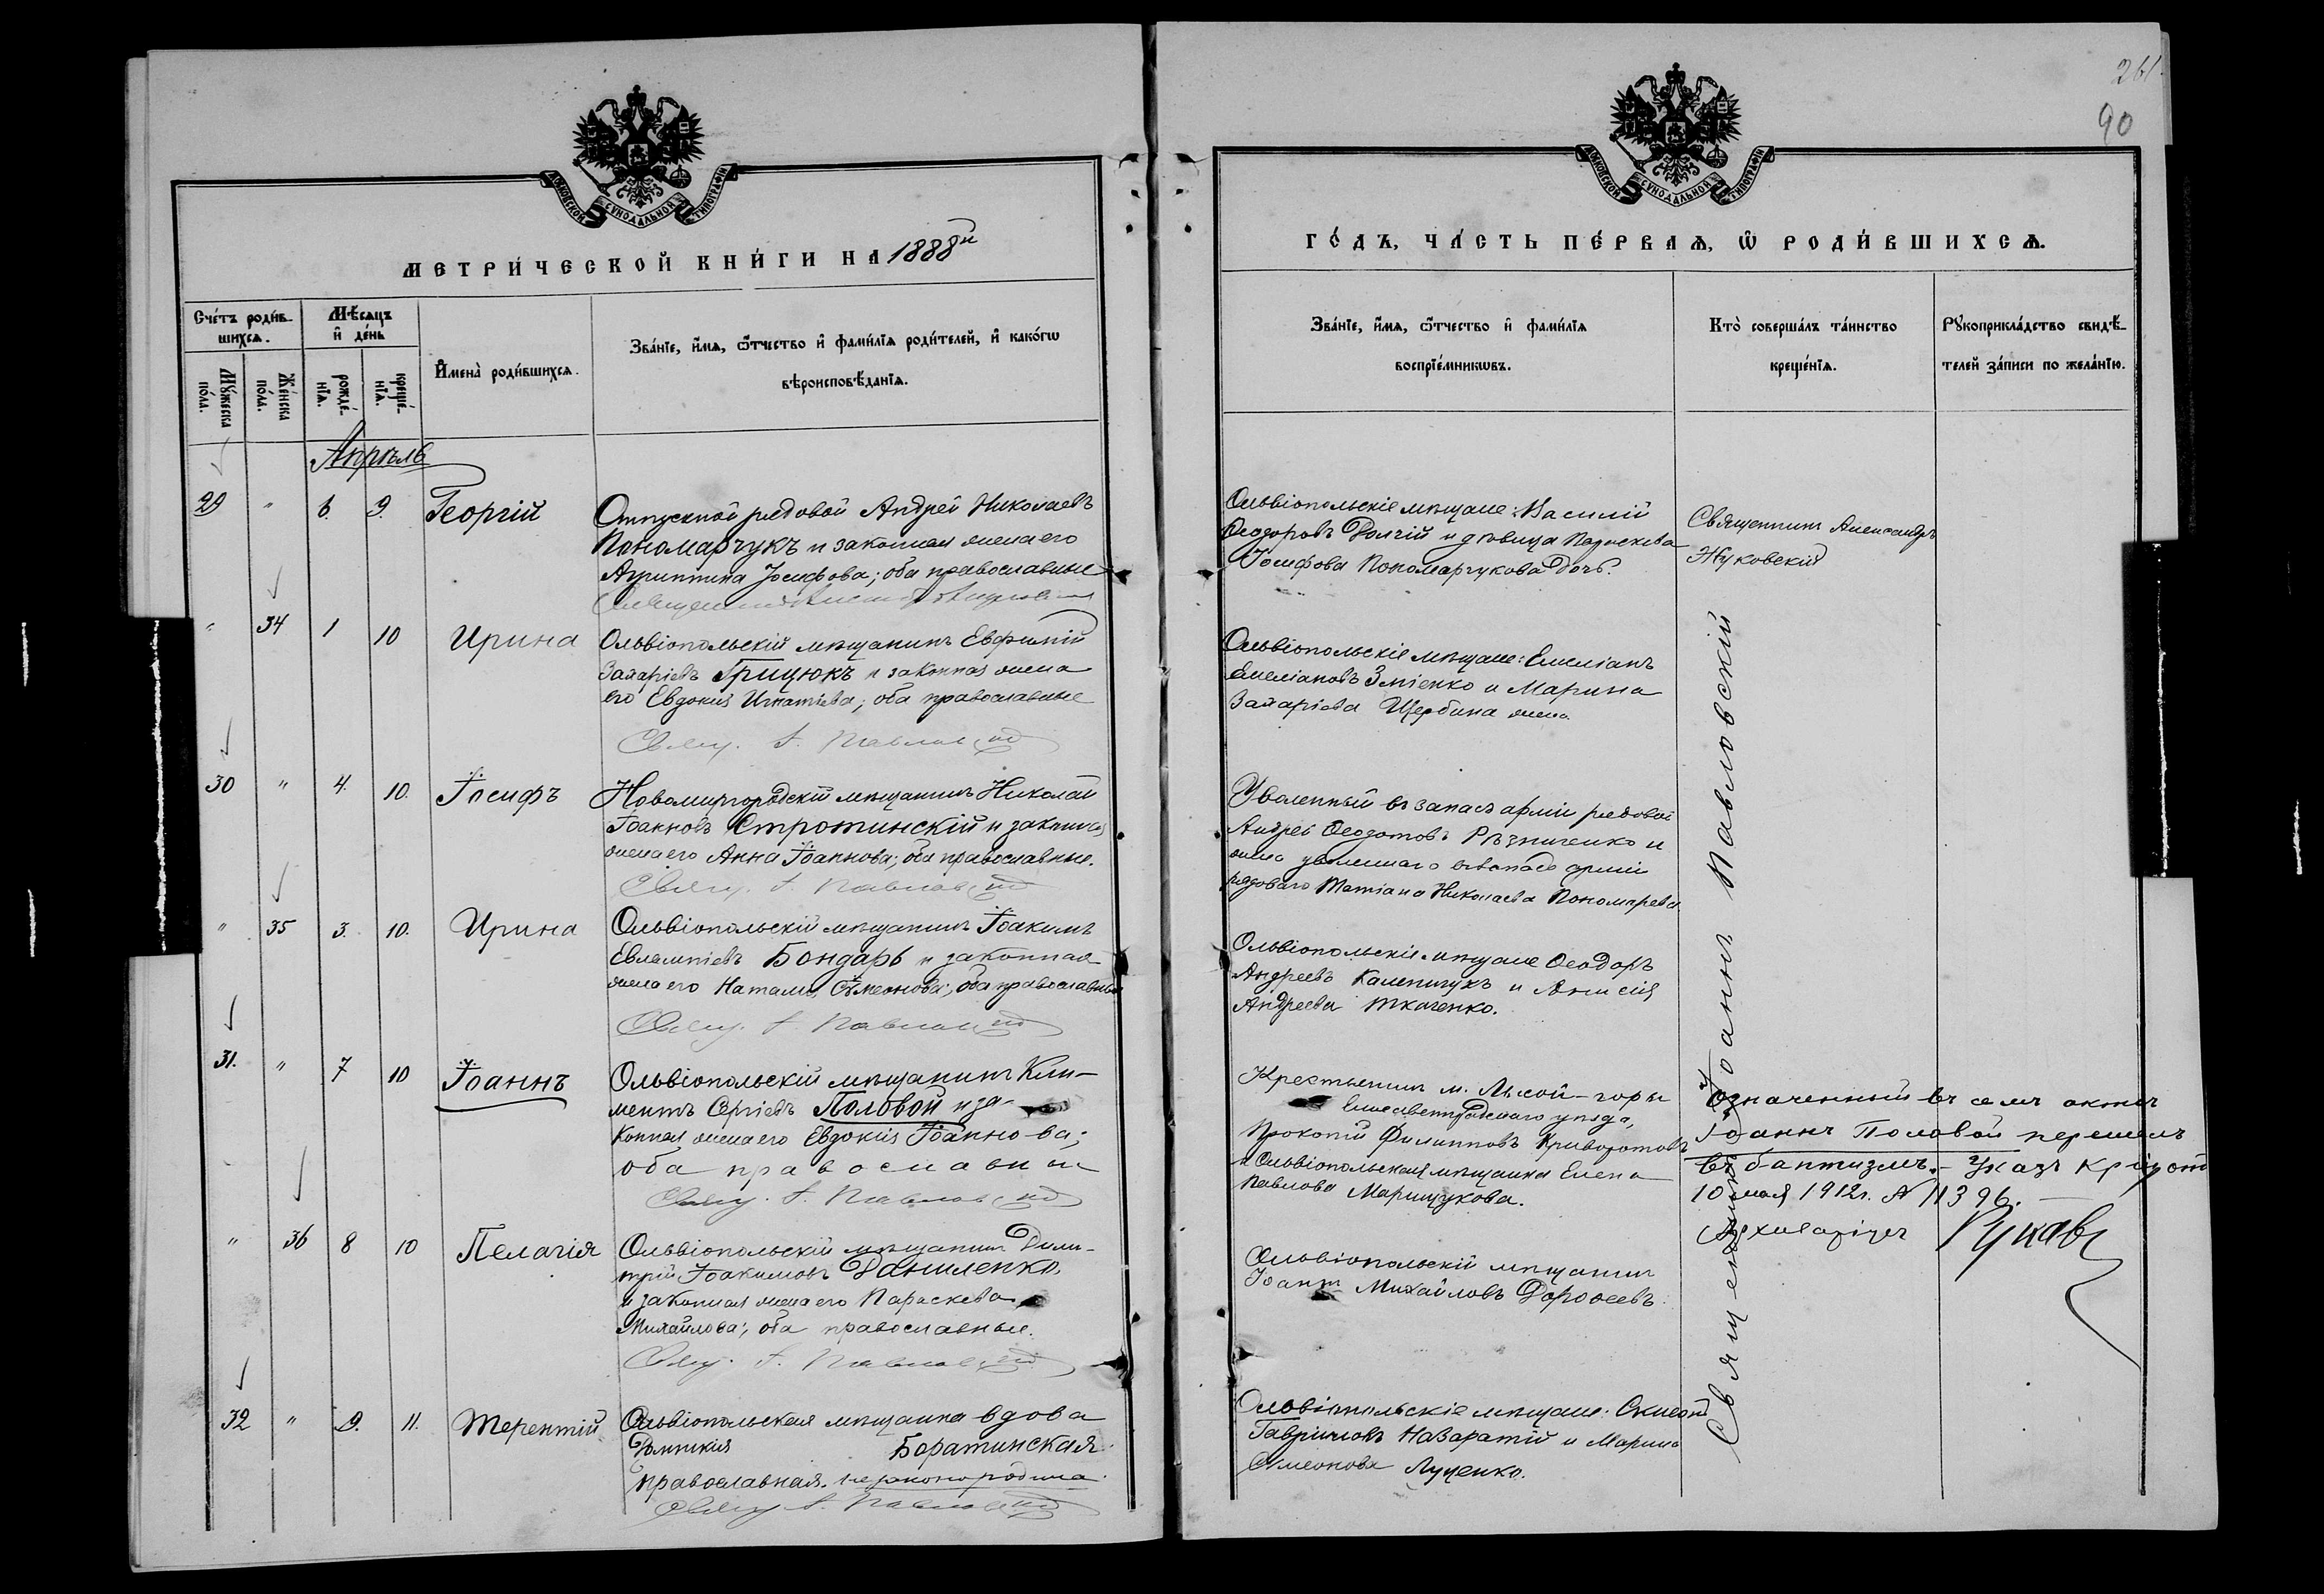 261
90
МОСКОВСКОЙ СѴНОДАЛЬНОЙ ТИПОГРАФІИ
МОСКОВСКОЙ СѴНОДАЛЬНОЙ ТИПОГРАФІИ
МЕТРИ́ЧЕСКОЙ КНИ́ГИ НА 1888й
ГО́ДЪ, ЧА́СТЬ ПЕ́РВАѦ, Ѡ РОДИ́ВШИХСѦ.
Сче́тъ роди́в-
шихсѧ.
Мѣ́сѧцъ
и де́нь
Мꙋ́жеска
по́ла.
Же́нска
по́ла.
рожде́-
нїѧ.
креще́-
нїѧ.
И҆мена̀ роди́вшихсѧ.
Зва́нїе, и҆́мѧ, ѻ҆́тчество и҆ фами́лїѧ роди́телей, и҆ како́гѡ
вѣроисповѣ́данїѧ.
Зва́нїе, и҆́мѧ, ѻ҆́тчество и҆ фами́лїѧ
воспрїе́мникѡвъ.
Кто̀ соверша́лъ та́инство
креще́нїѧ.
Рꙋкоприкла́дство свидѣ́-
телей за́писи по жела́нїю.
Апрѣль
29 " 6. 9. Георгій
Отпускной рядовой Андрей Николаевъ
Пономарчукъ и законная жена его
Агриппина Іосифова; оба православные
Ольвіопольскіе мѣщане: Василій
Ѳеодоровъ Долгій и дѣвица Параскева
Іосифова Пономарчукова дочь.
Священникъ Александръ
Жуковскій
" 34 1 10 Ирина
Ольвіопольскій мѣщанинъ Евфимій
Захаріевъ Грицюкъ и законная жена
его Евдокія Игнатіева; оба православные
Свящ. І. Павловскій
Ольвіопольскіе мѣщане: Емеліанъ
Емеліановъ Зміенко и Марина
Захаріева Щербина жена.
30 " 4. 10. Іосифъ
Новомиргородскій мѣщанинъ Николай
Іоанновъ Стротинскій и законная
жена его Анна Іоаннова; оба православные.
Свящ. І. Павловскій
Уволенный въ запасъ арміи рядовой
Андрей Ѳеодотовъ Рѣзниченко и
жена уволеннаго въ запасъ арміи
рядоваго Татіана Николаева Пономарева
" 35 3. 10. Ирина
Ольвіопольскій мѣщанинъ Іоакимъ
Евлампіевъ Бондарь и законная
жена его Наталія Сѵмеонова; оба православные
Свящ. І. Павловскій
Ольвіопольскіе мѣщане Ѳеодоръ
Андреевъ Каленичукъ и Анисія
Андреева Ткаченко.
31. " 7 10 Іоаннъ
Ольвіопольскій мѣщанинъ Кли-
ментъ Сергіевъ Половой и за-
конная жена его Евдокія Іоанно-ва;
оба православные
Свящ. І. Павловскій
Крестьянинъ м. Лысой-горы
Елисаветградскаго уѣзда,
Прокопій Филипповъ Криворотовъ
и Ольвіопольская мѣщанка Елена
Павлова Марищукова.
Означенный въ семъ актѣ
Іоаннъ Половой перешелъ
въ баптизмъ. - Указъ от
10 мая 1912г. № 11396.
Архиваріусъ
" 36 8 10 Пелагія
Ольвіопольскій мѣщанинъ Дими-
трій Іоакимовъ Даниленко
и законная жена его Параскева
Михайлова; оба православные.
Свящ. І. Павловскій
Ольвіопольскій мѣщанинъ
Іоаннъ Михайловъ Дороѳеевъ.
32 " 9. 11. Терентій
Ольвіопольская мѣщанка вдова
Домникія Боратинская
православная. незаконородина.
Свящ. І. Павловскій
Ольвіопольскіе мѣщане:
Гавріиловъ Назаратій и Марина
Сѵмеонова Луценко.
Священникъ Іоаннъ Павловскій